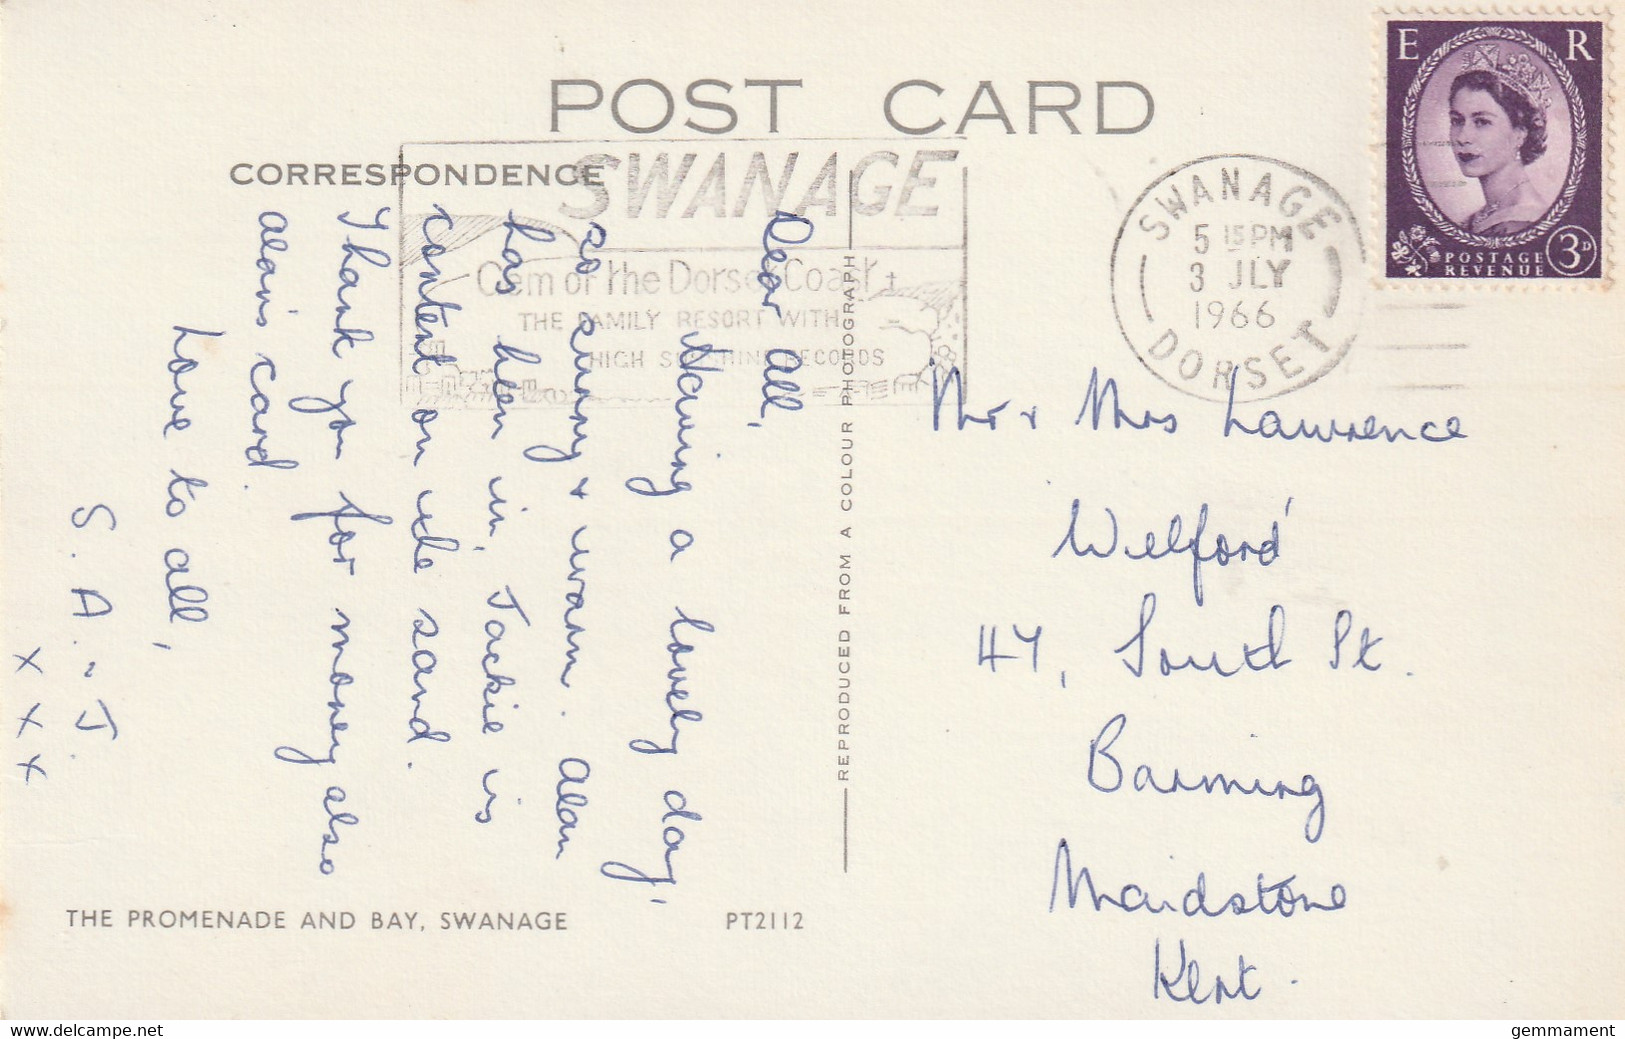 POST CARD
CORRESPONDENCE
SWANAGE
Gem of the Dorset Coast
THE FAMILY RESORT WITH
HIGH SUNSHINE RECORDS
SWANAGE
5 15 PM
3 JLY
1966
DORSET
E R
POSTAGE
REVENUE
3D
Dear All,
Having a lovely day,
so sunny & warm. Alan
has been in, Jackie is
content on the sand.
Thank you for money also
Alan's card.
Love to all,
S. A. " J.
x x x
REPRODUCED FROM A COLOUR PHOTOGRAPH
Mr & Mrs Lawrence
Welford
47, South St.
Barming
Maidstone
Kent.
THE PROMENADE AND BAY, SWANAGE
PT2112
www.delcampe.net
gemmament